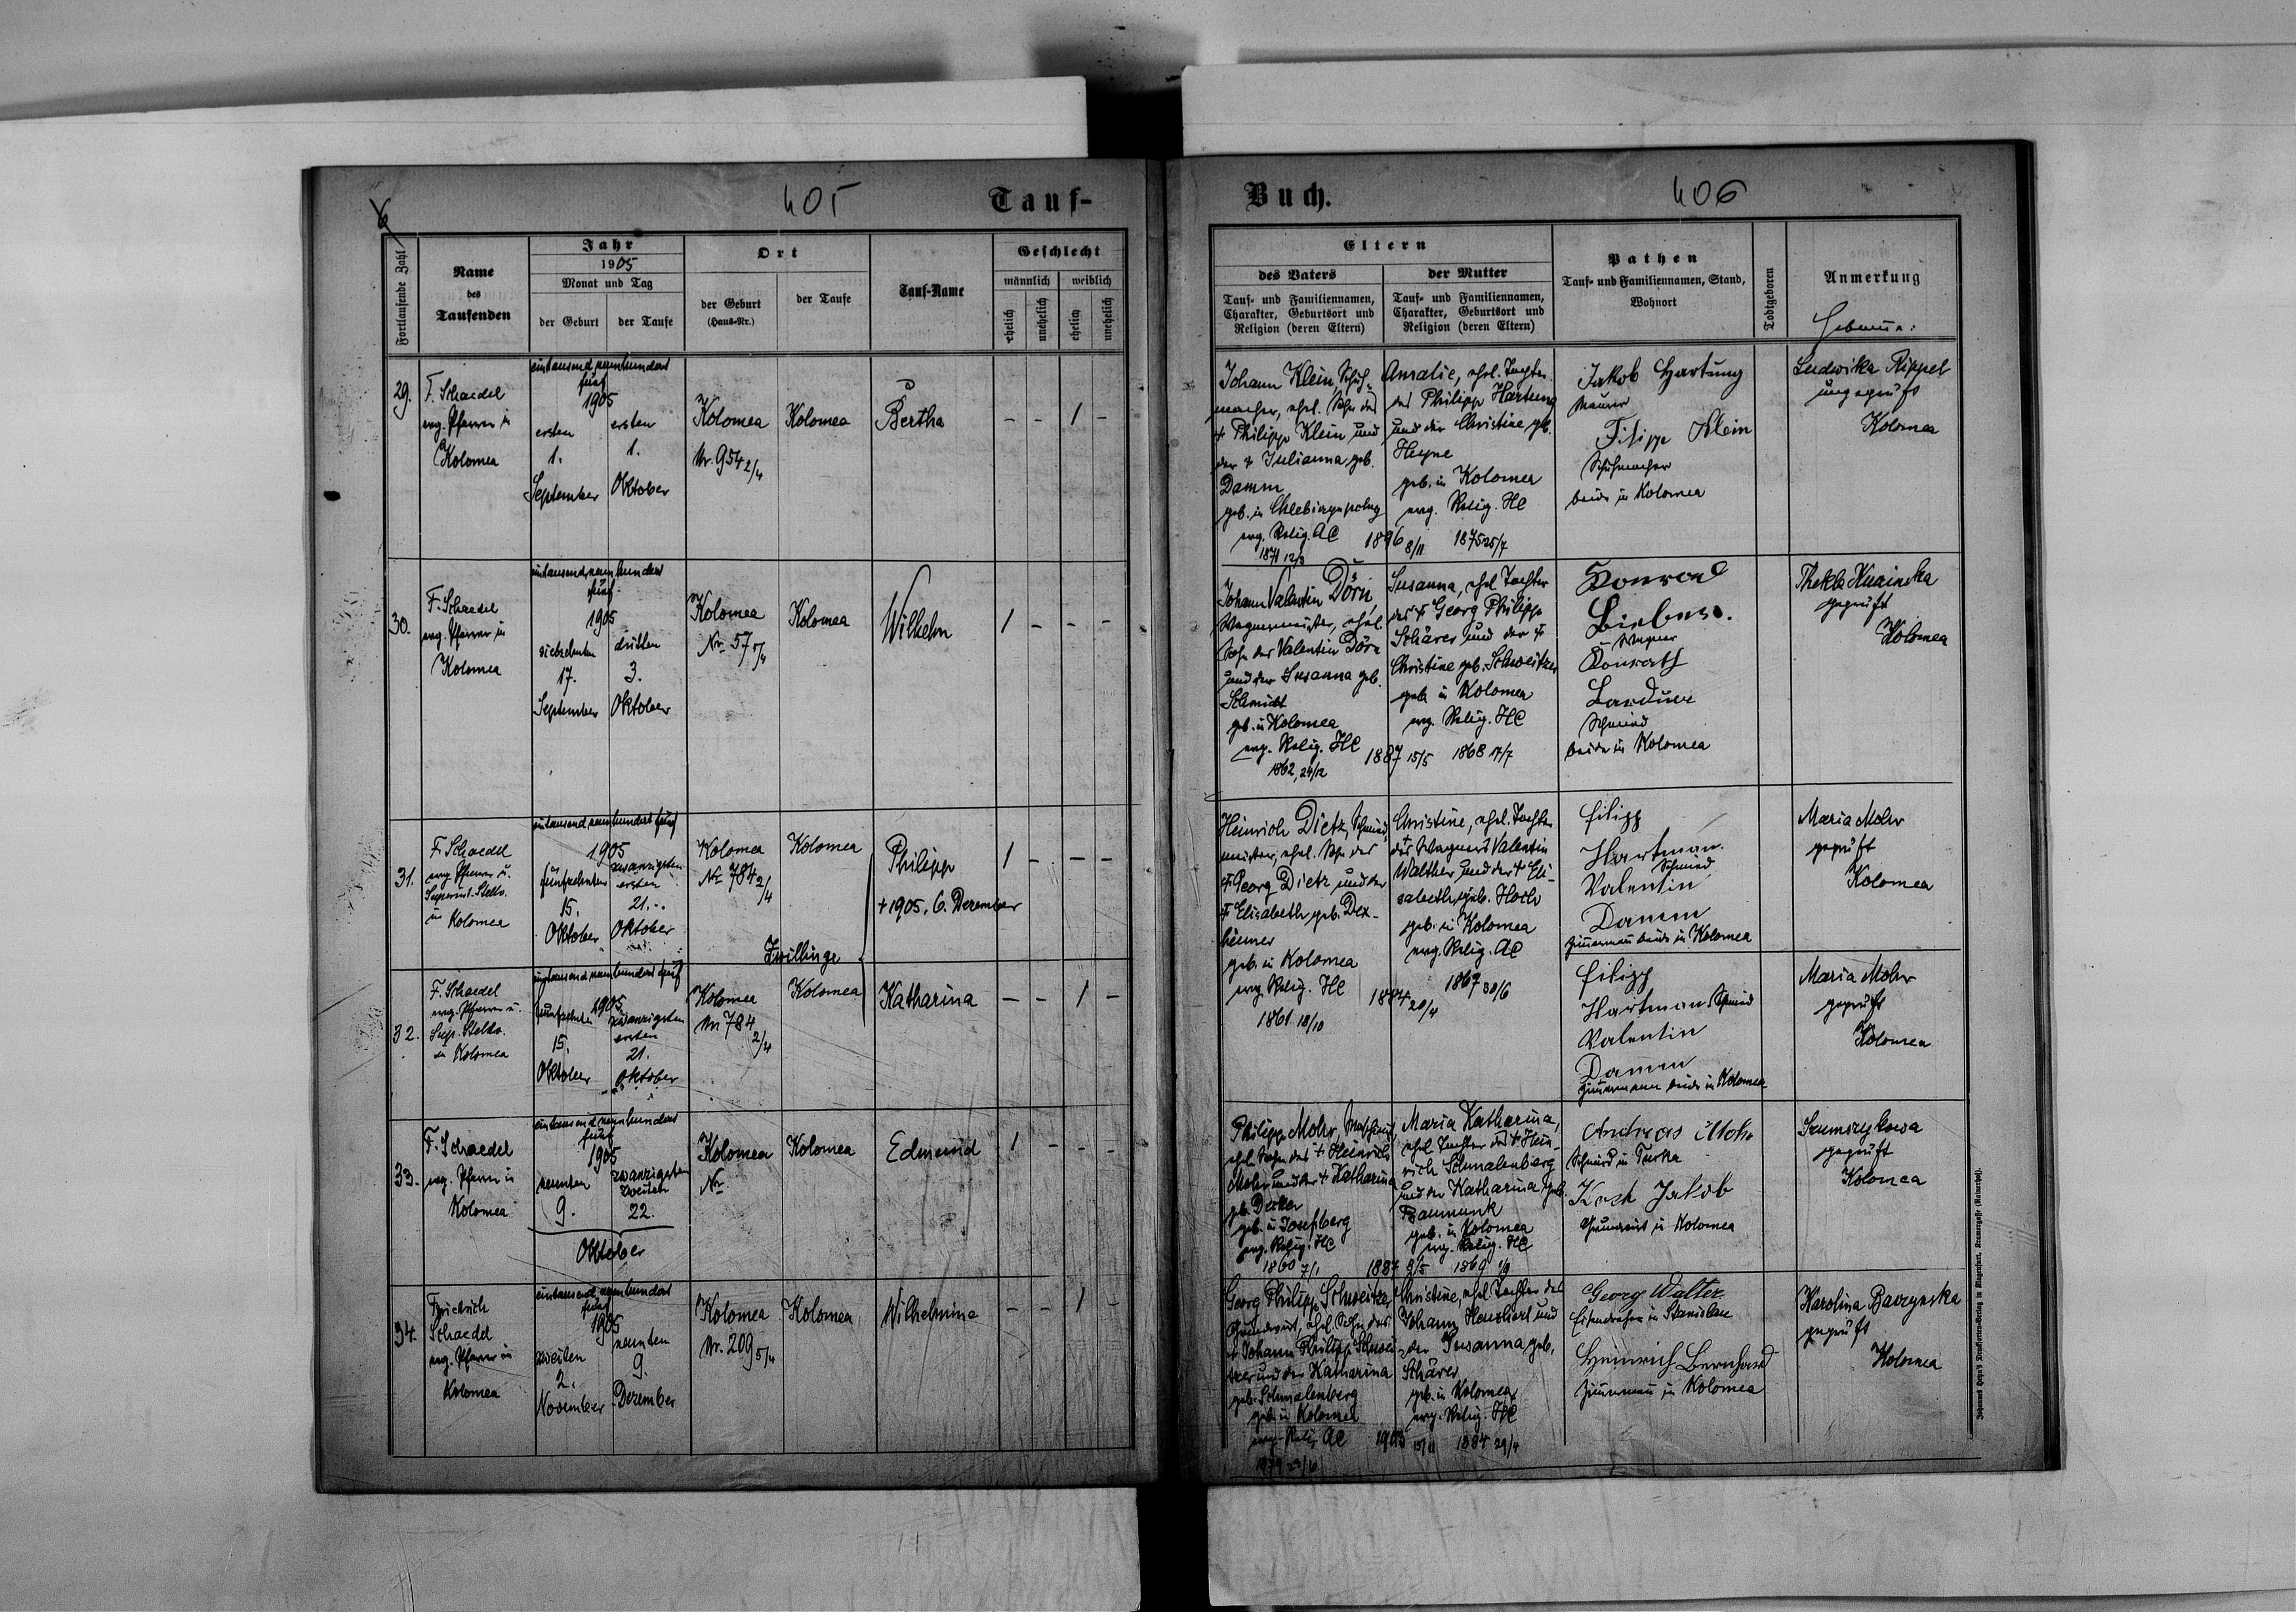 405
Tauf-
Fortlaufende Zahl
Name
des
Taufenden
Jahr
1905
Monat und Tag
der Geburt
der Taufe
Ort
der Geburt
(Haus-Nr.)
der Taufe
Tauf-Name
Geschlecht
männlich
weiblich
ehelich
unehelich
ehelich
unehelich
29.
F. Schaedel
evg. Pfarrer in
Kolomea
eintausend neunhundert
fünf
1905
ersten
1.
September
ersten
1.
Oktober
Kolomea
Nr. 954 2/4
Kolomea
Bertha
- - 1 -
30.
F. Schaedel
evg. Pfarrer in
Kolomea
eintausend neunhundert
fünf
1905
siebzehnten
17.
September
dritten
3.
Oktober
Kolomea
Nr. 57 5/4
Kolomea
Wilhelm
1 - - -
31.
F. Schaedel
evg. Pfarrer u.
Superint. Stellv.
in Kolomea
eintausend neunhundert fünf
1905
fünfzehnten
15.
Oktober
zwanzigsten
ersten
21.
Oktober
Kolomea
Nr. 784 2/4
Kolomea
Philipp
+ 1905, 6. Dezember
1 - - -
Zwillinge
32.
F. Schaedel
evg. Pfarrer u.
Sup. Stellv.
in Kolomea
eintausend neunhundert fünf
1905
fünfzehnten
15.
Oktober
zwanzigsten
ersten
21.
Oktober
Kolomea
Nr 784
2/4
Kolomea
Katharina
- - 1 -
33.
F. Schaedel
evg. Pfarrer in
Kolomea
eintausend neunhundert
fünf
1905
neunten
9.
zwanzigsten
zweiten
22.
Oktober
Kolomea
Nr
Kolomea
Edmund
1 - - -
34.
Friedrich
Schaedel
evg. Pfarrer in
Kolomea
eintausend neunhundert
fünf
1905
zweiten
2.
November
neunten
9.
Dezember
Kolomea
Nr. 209 5/4
Kolomea
Wilhelmine
- - 1 -
Buch.
406
Eltern
des Vaters
Tauf- und Familiennamen,
Charakter, Geburtsort und
Religion (deren Eltern)
der Mutter
Tauf- und Familiennamen,
Charakter, Geburtsort und
Religion (deren Eltern)
Pathen
Tauf- und Familiennamen, Stand,
Wohnort
Todtgeboren
Anmerkung
Johann Klein, Schuh-
macher, ehel. Sohn des
+ Philipp Klein und
der + Julianna geb.
Damm
geb. in
evg. Relig. AC
1871 12/3
1896 8/11
Amalie, ehel. Tochter
des Philipp Hartung
und der Christine geb.
Heyne
geb. in Kolomea
evg. Relig. HC
1875 25/7
Jakob Hartung
Maurer
Filipp Klein
Schuhmacher
beide in Kolomea
Ludwika Rippel
ungeprüft
Kolomea
Johann Valentin Dörn,
Wagnermeister, ehel.
Sohn des Valentin Dörn
und der Susanna geb.
Schmidt
geb. in Kolomea
evg. Relig. HC
1862, 24/12
1887 15/5
Susanna, ehel. Tochter
des + Georg Philipp
Schärer und der +
Christine geb. Schweitzer
geb. in Kolomea
evg. Relig. HC
1868 17/7
Konrad
Wagner
Schmied
beide in Kolomea
Thekla
geprüft
Kolomea
Heinrich Dietz, Schmied
meister, ehel. Sohn des
+ Georg Dietz und der
+ Elisabeth geb. Dex-
heimer
geb. in Kolomea
evg. Relig. HC
1861 18/10
1884 20/4
Christine, ehel. Tochter
des Wagners Valentin
Walther und der + Eli-
sabeth geb. Hoch
geb. in Kolomea
evg. Relig. AC
1867 30/6
Filipp
Hartman
Schmied
Valentin
Damm
Zimmermann beide in Kolomea
Maria Mohr
geprüft
Kolomea
Filipp
Hartman Schmied
Valentin
Damm
Zimmermann beide in Kolomea
Maria Mohr
geprüft
Kolomea
Philipp Mohr,
ehel. Sohn des + Heinrich
Mohr und der + Katharina
geb. Decker
geb. in Josefsberg
evg. Relig. HC
1860 7/1
1887 8/5
Maria Katharina,
ehel. Tochter des + Hein-
rich Schmalenberg
und der Katharina geb.
Baumunk
geb. in Kolomea
evg. Relig. HC
1869 1/9
Andreas Mohr
Schmied in Turka
Koch Jakob
Grundwirt in Kolomea
geprüft
Kolomea
Georg Philipp Schweitzer
Grundwirt, ehel. Sohn des
+ Johann Philipp Schwei-
tzer und der Katharina
geb. Schmalenberg
geb. in Kolomea
evg. Relig. AC
1903 15/11
Christine, ehel. Tochter des
Johann und
der Susanna geb.
Schärer
geb. in Kolomea
evg. Relig. HC
1884 29/4
Georg Walter
in Stanislau
Heinrich Bernhard
Zimmermann in Kolomea
Karolina
geprüft
Kolomea